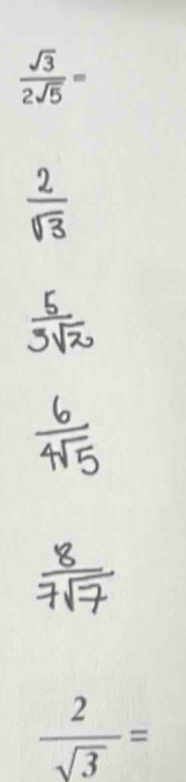 √3/2√5 =
2/√3
5/3√2
6/4√5
8/7√7
2/√3 =